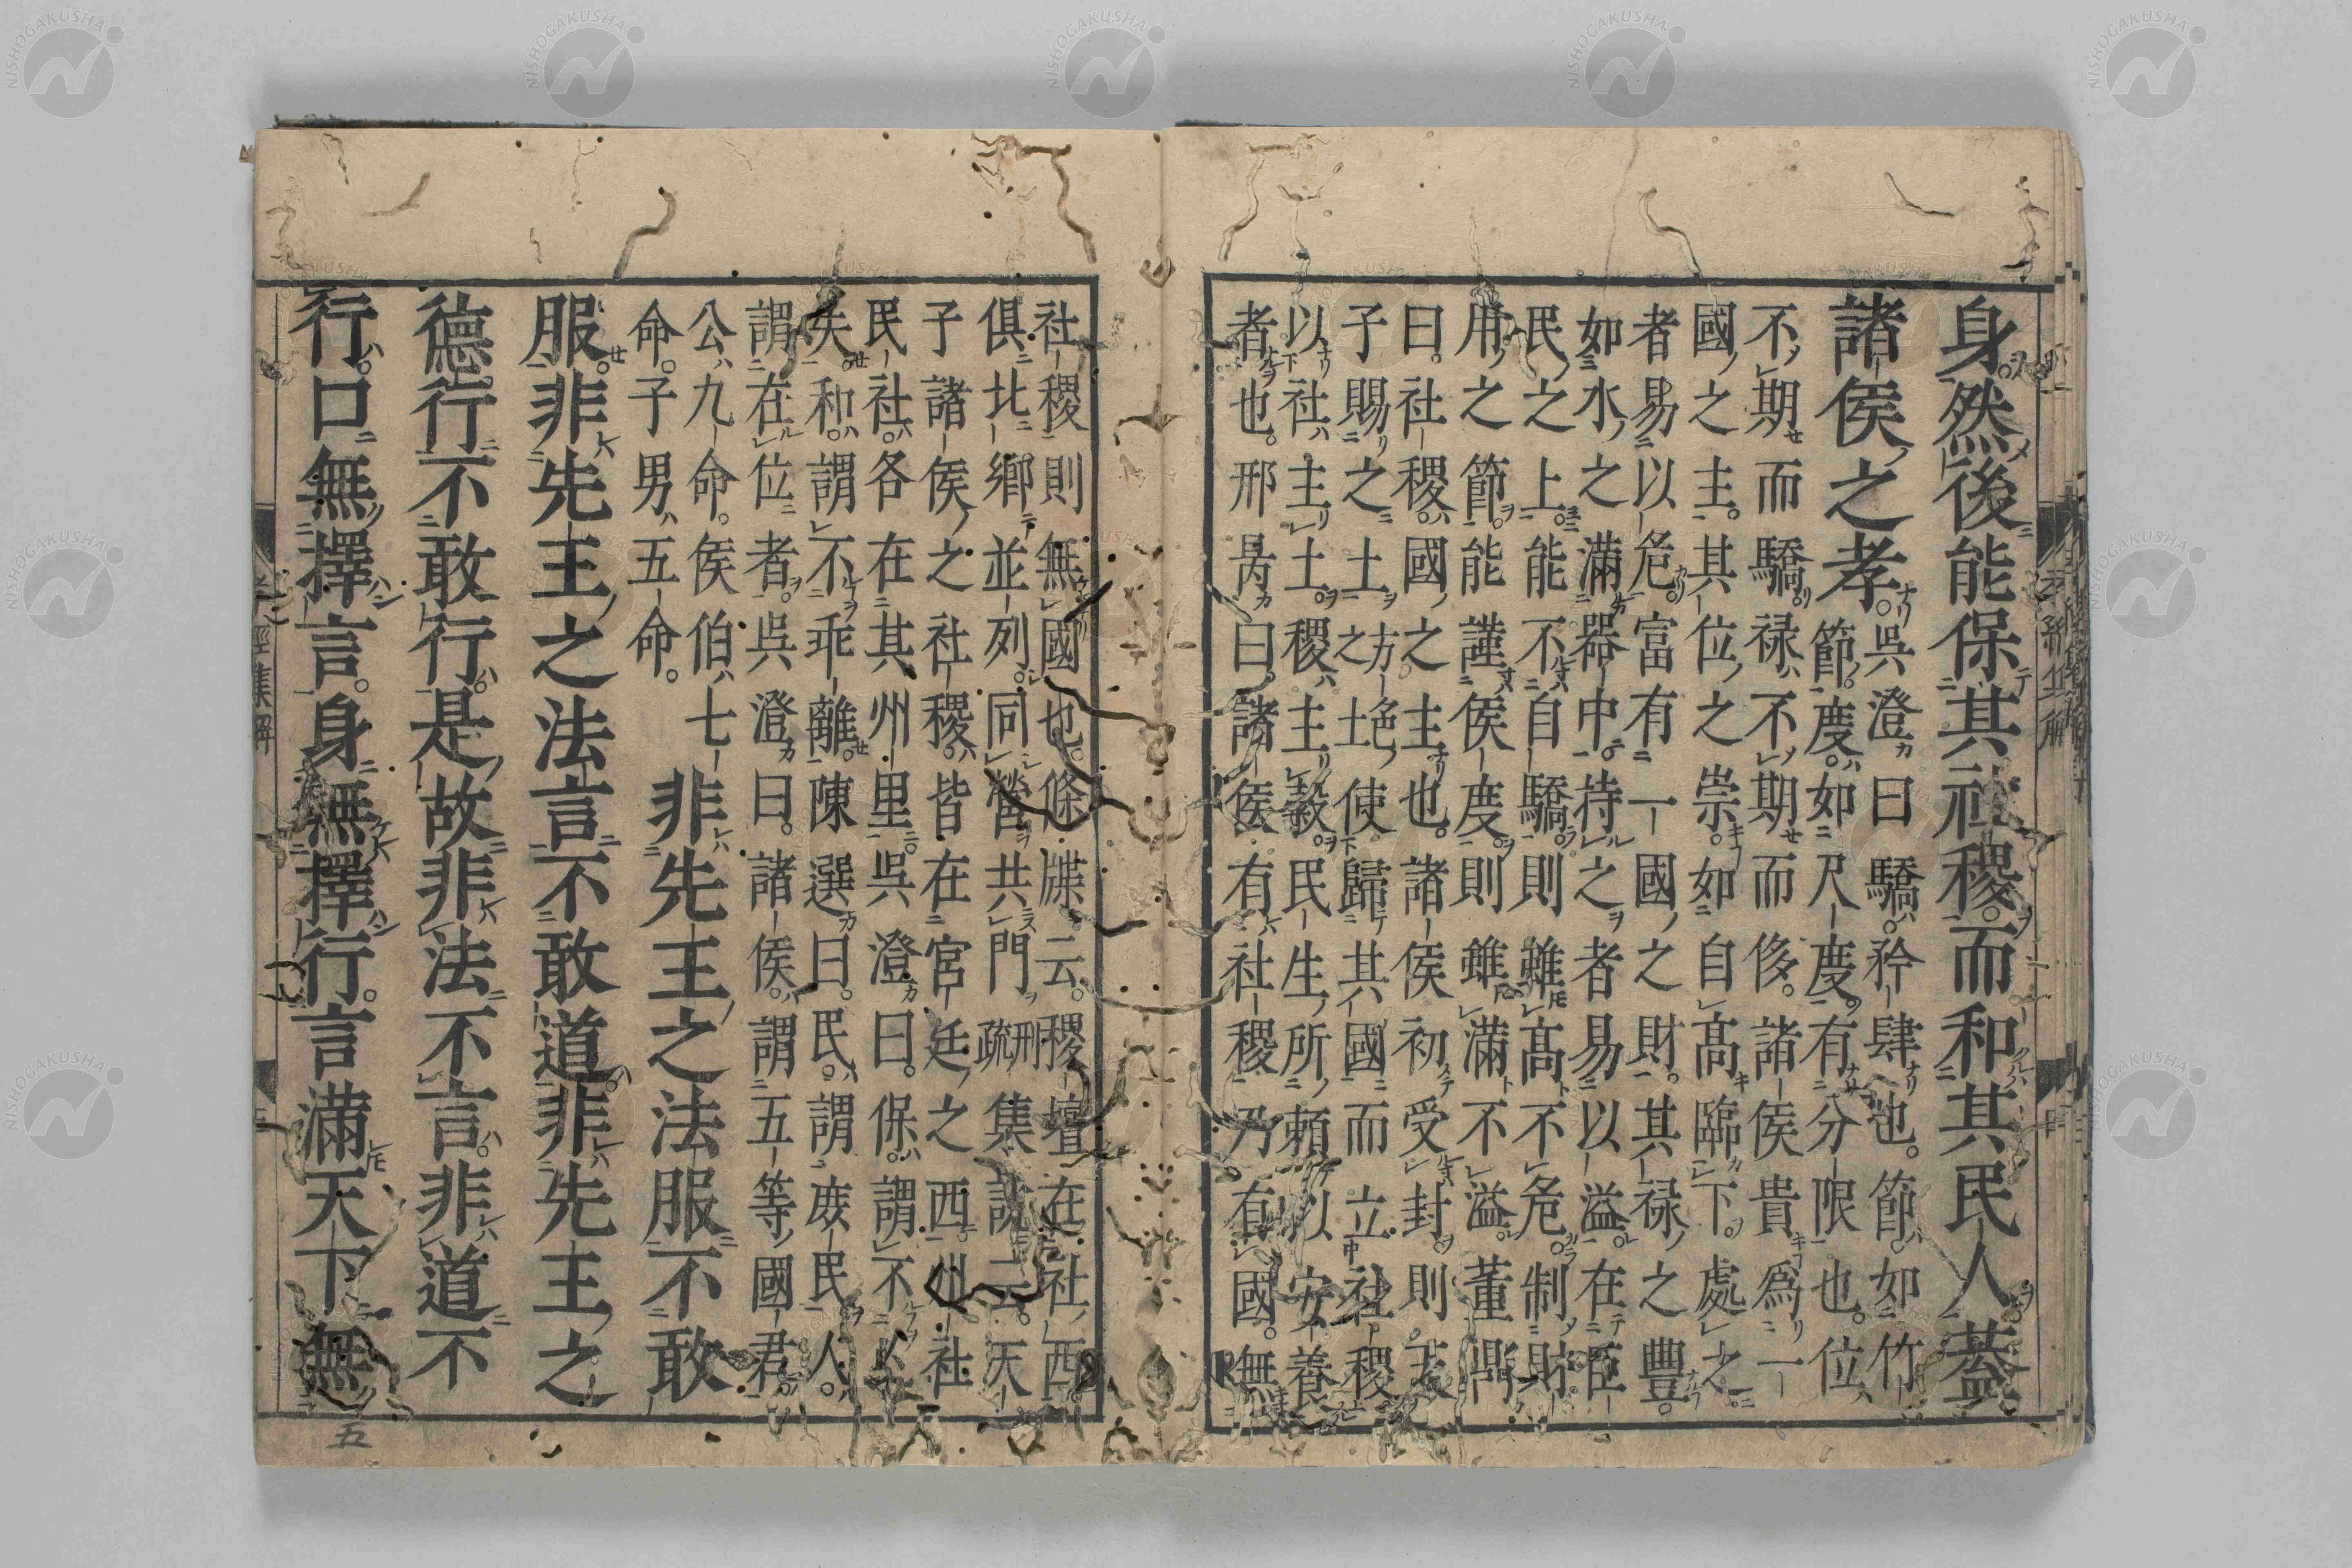 身然後能保其社稷而和其民人蓋
諸侯之孝呉澄曰驕矜肆也節如竹
節度如尺度有分限也位
不期而驕禄不期而侈諸侯貴爲一
國之主其位之崇如自高臨下處之
者易以危富有一國之財其禄之豐
如水之滿器中持之者易以溢在臣
民之上能不自驕則雖高不危制財
用之節能謹侯度則雖滿不溢董鼎
曰社稷國之主也諸侯初受封則天
子賜之土方色之土使歸其國而立社稷
以社主土稷主穀民生所頼以安養
者也邢昺曰諸侯有社稷乃有國無
社稷則無國也條牒云稷壇在社西
俱北郷並列同營共門刑疏集說云天
子諸侯之社稷皆在宮廷之西州社
民社各在其州里呉澄曰保謂不
失和謂不乖離陳選曰民謂庻民人
謂在位者呉澄曰諸侯謂五等國君
公九命侯伯七
命子男五命非先王之法服不敢
服非先王之法言不敢道非先王之
德行不敢行是故非法不言非道不
行口無擇言身無擇行言滿天下無
孝經集解
五
NISHOGAKUSHA